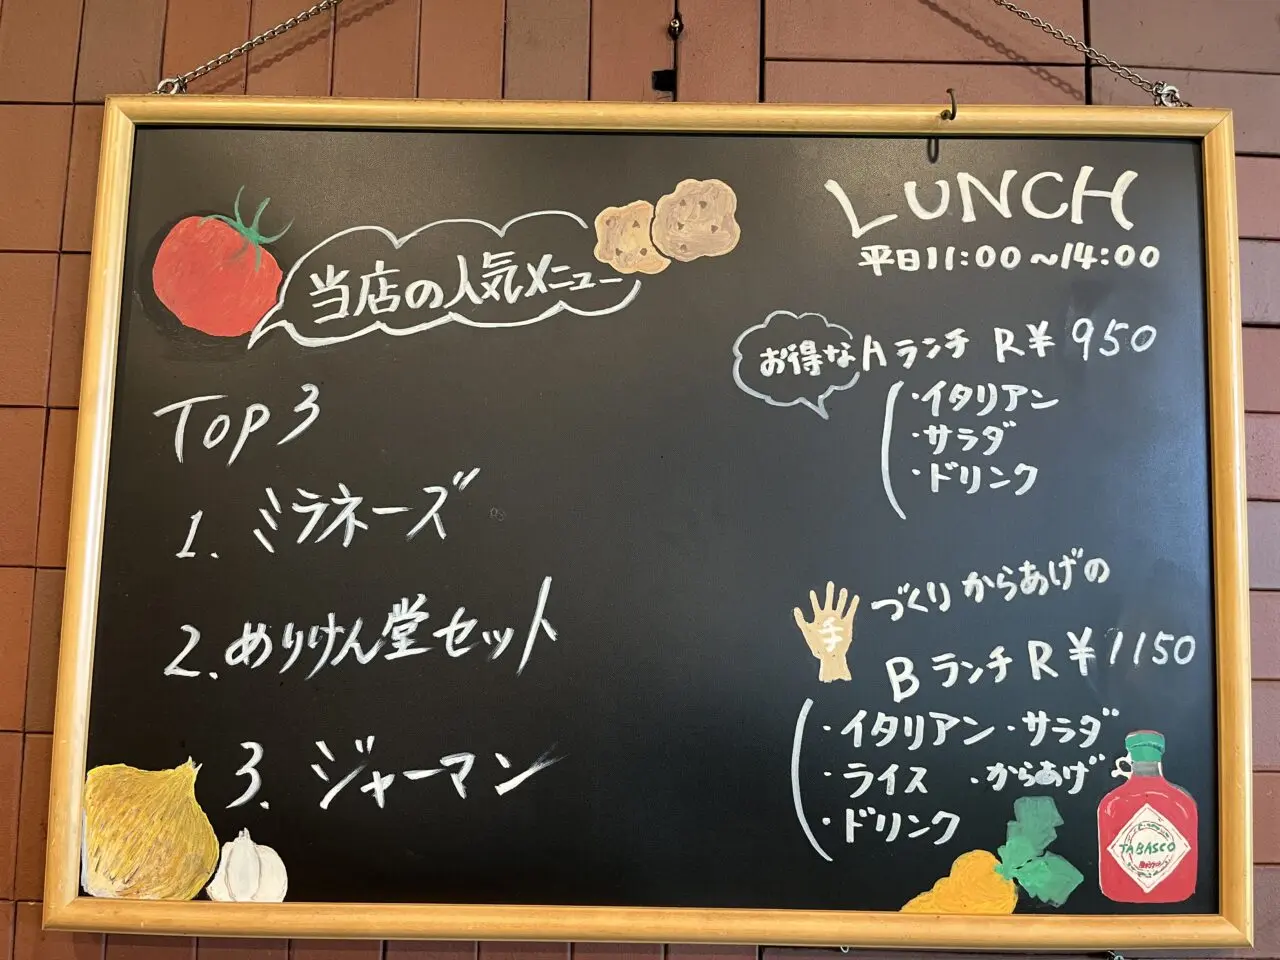 当店の人気メニュー
TOP 3
1. ミラネーズ
2. めりけん堂セット
3. ジャーマン
LUNCH
平日11:00～14:00
お得なAランチ R¥950
・イタリアン
・サラダ
・ドリンク
手づくりからあげの
BランチR¥1150
・イタリアン・サラダ
・ライス ・からあげ
・ドリンク
TABASCO